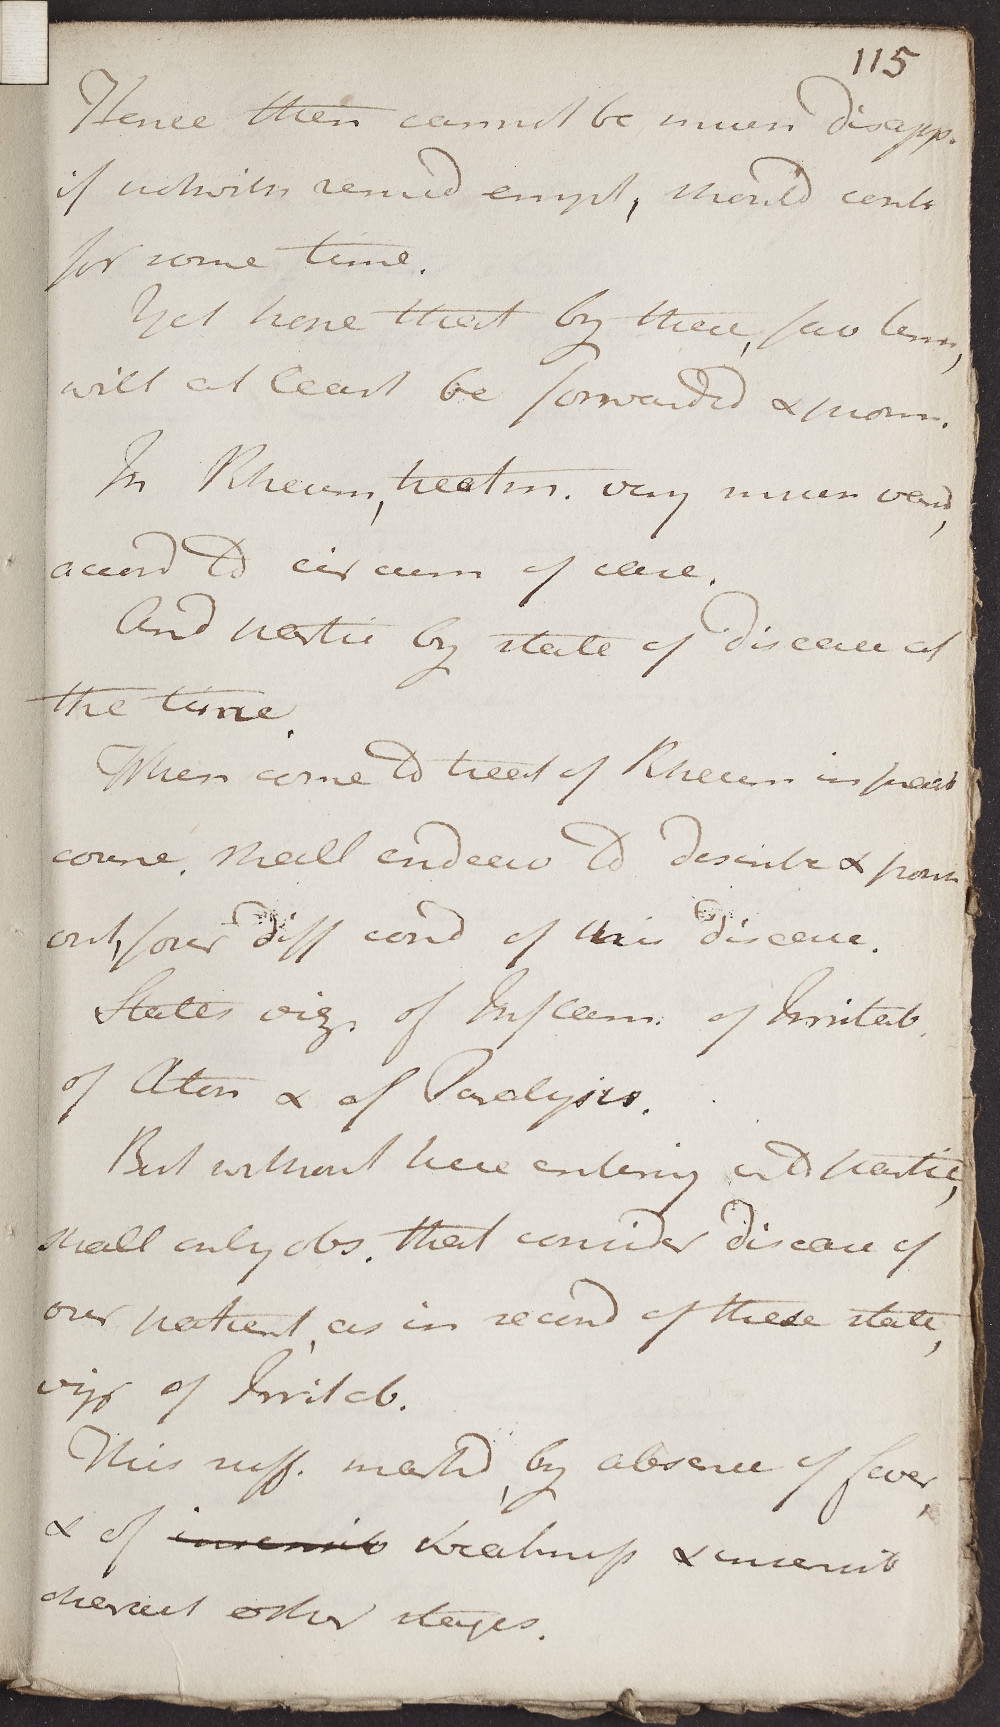 115
Hence then cannot be much disapp.
if notwith remed empl, should conti
for some time.
Yet hope that by these, fav term,
will at least be forwarded & prom.
In Rheum, treatm. very much varied,
accord to circum of case.
And partic by state of disease at
the time.
When come to treat of Rheum in pract
course, shall endeav to describe & point
out, four diff cond of this disease.
States viz. of Inflam. of Irritab.
of Aton & of Paralysis.
But without here entering into partic,
shall only obs. that consider disease of
our patient, as in second of these state,
viz of Irritab.
This suff. marked, by absence of fever,
& of insensib weakness & insensib
charact other stages.